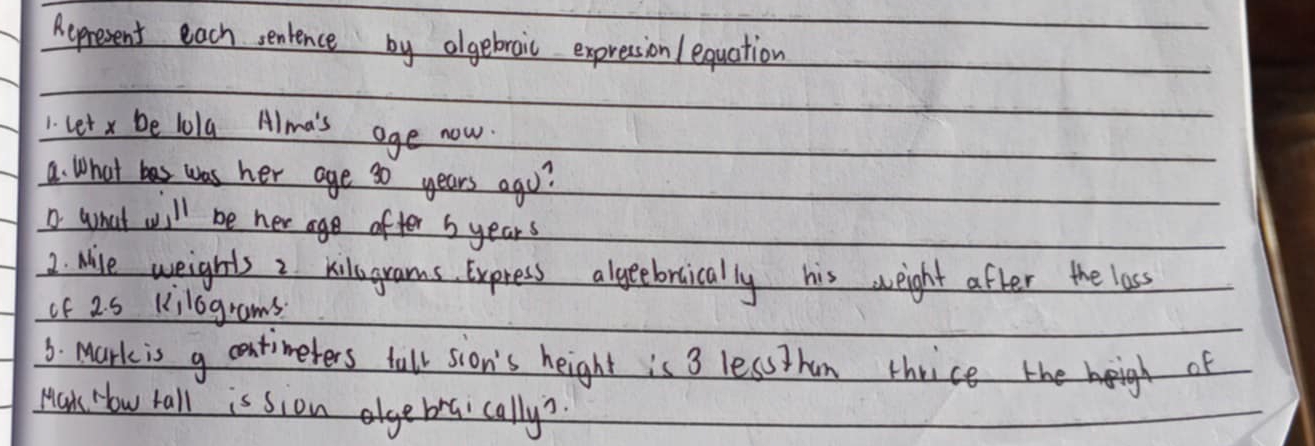 Represent each sentence by algebraic expression/equation
1. Let x be lola Alma's age now.
a. What was her age 30 years ago?
b. What will be her age after 5 years
2. Nile weights 2 kilograms. Express algeebraically his weight after the loss
of 2.5 kilograms.
3. Mark is y centimeters tall sion's height is 3 less than thrice the heigh of
Mark. How tall is sion algebraically?